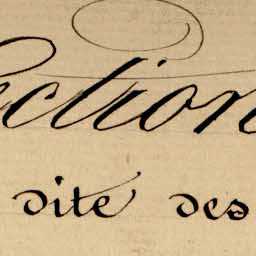 ection
dite des